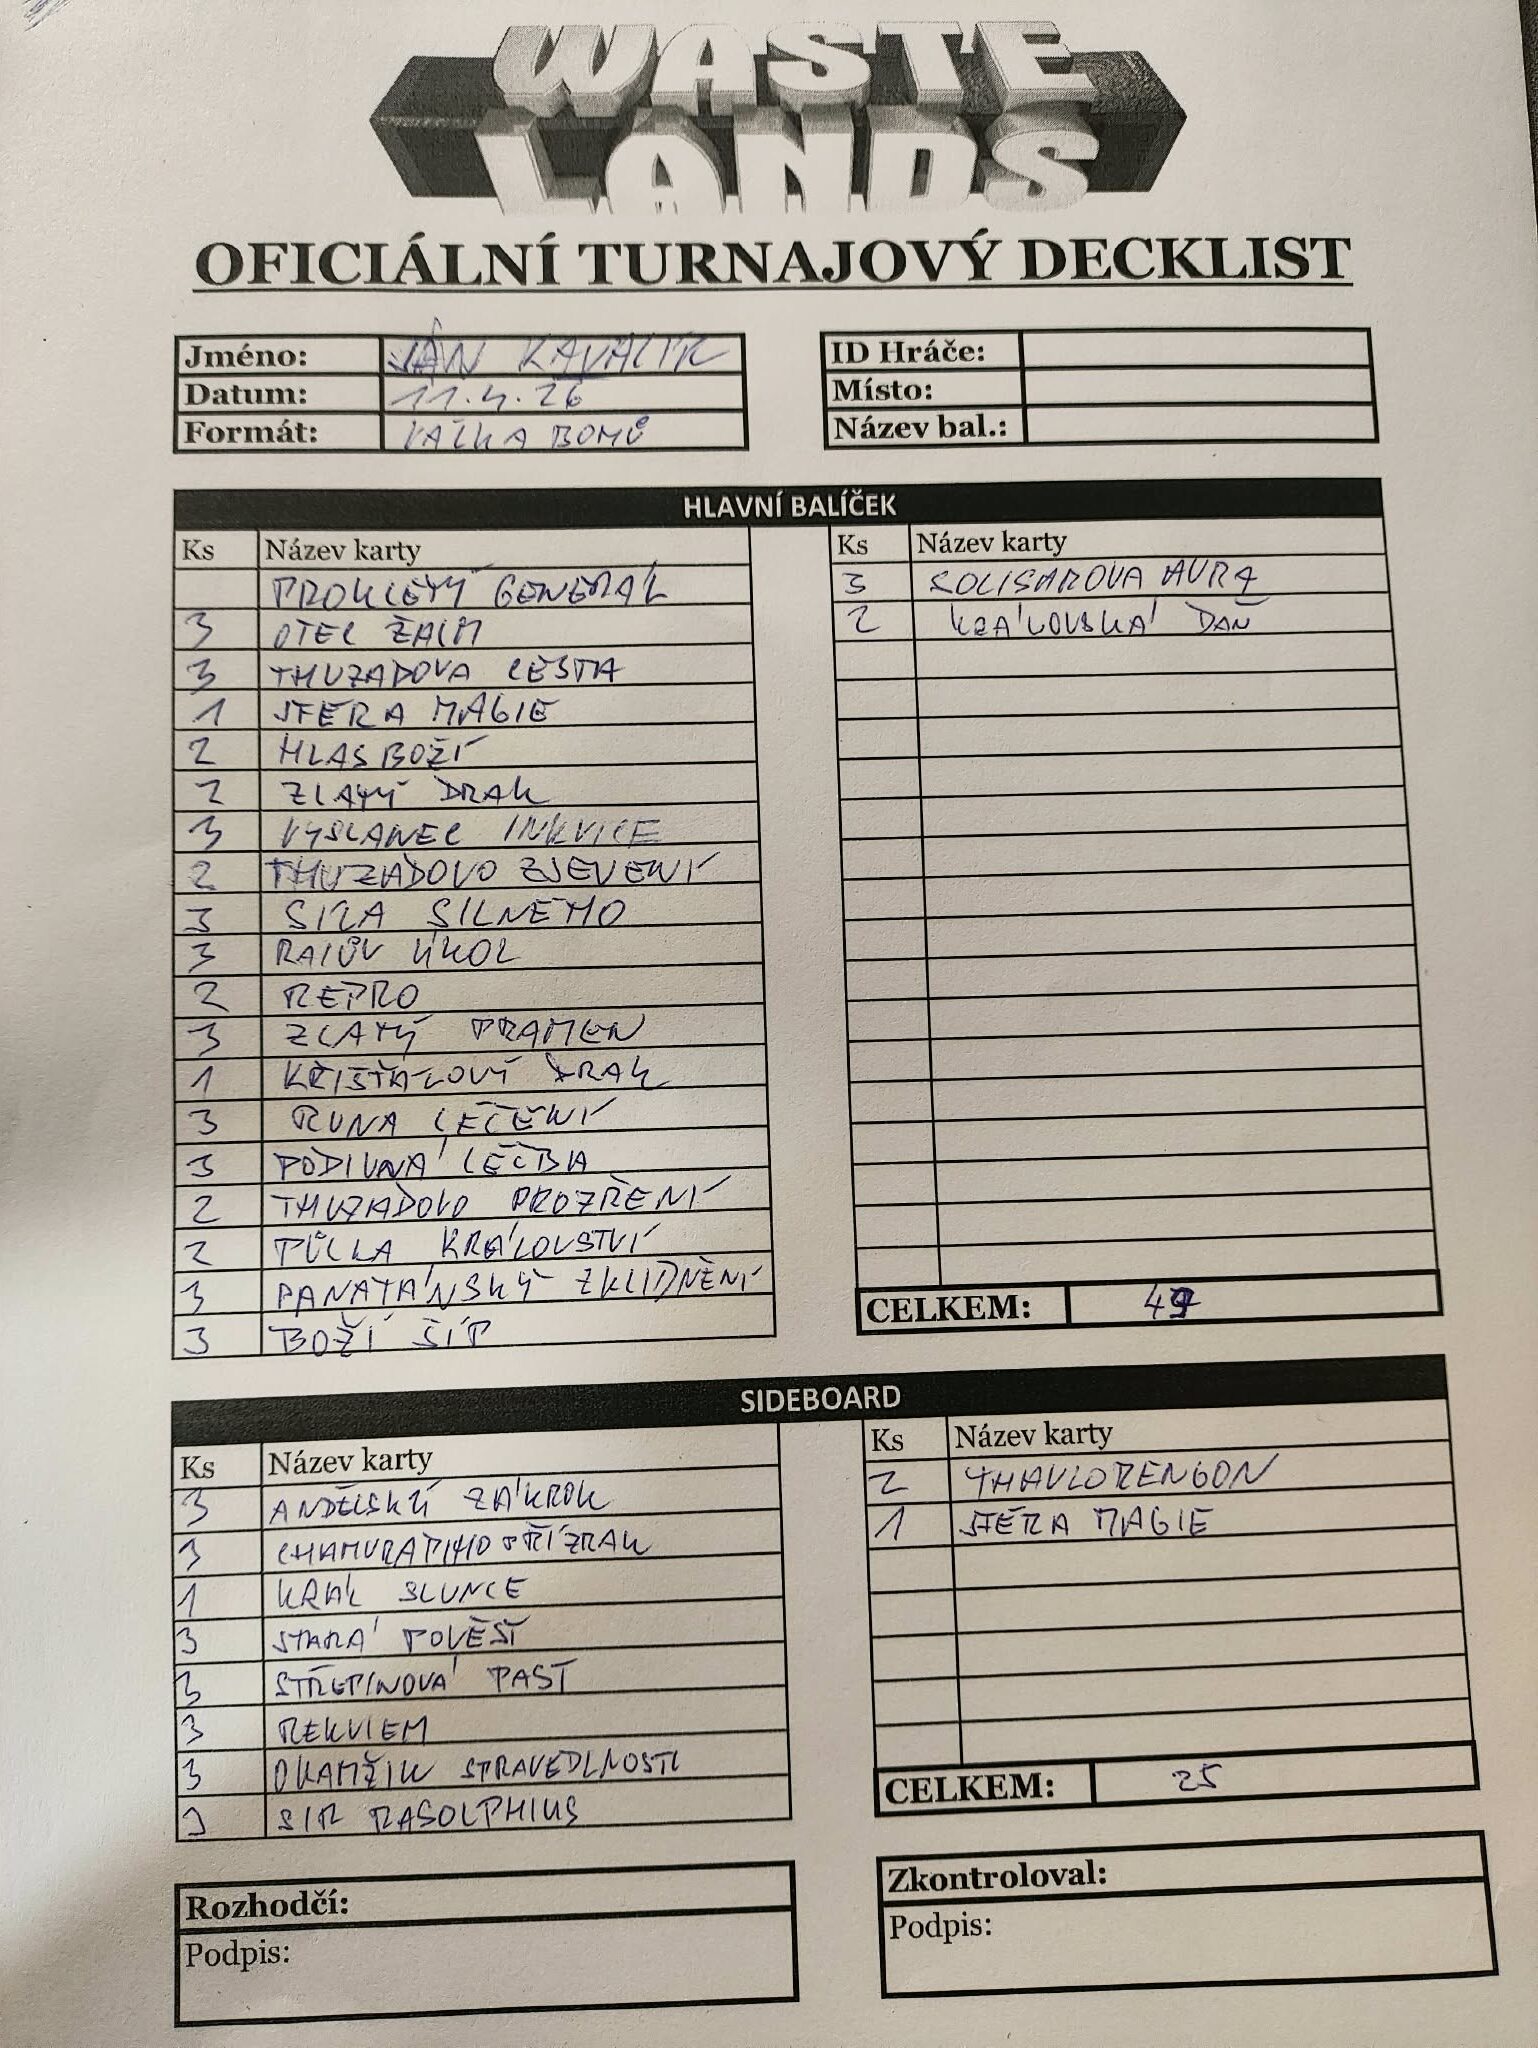 WASTE
LANDS
OFICIÁLNÍ TURNAJOVÝ DECKLIST
Jméno: JÁN KAVALÍR
Datum: 11.4.26
Formát: VÁLKA BOHŮ
ID Hráče:
Místo:
Název bal.:
HLAVNÍ BALÍČEK
Ks Název karty
PROKLETÝ GENERÁL
3 OTEC ŽALM
3 THUZADOVA CESTA
1 SFÉRA MAGIE
2 HLAS BOŽÍ
2 ZLATÝ DRAK
3 VYSLANEC INKVICE
2 THUZADOVO ZJEVENÍ
3 SÍLA SILNÉHO
3 RALŮV ÚKOL
2 REPRO
3 ZLATÝ PRAMEN
1 KŘIŠŤÁLOVÝ DRAK
3 RUNA LÉČENÍ
3 PODIVNÁ LÉČBA
2 THUZADOVO PROZŘENÍ
2 PŮLKA KRÁLOVSTVÍ
3 PANATÁNSKÝ ZKLIDNĚNÍ
3 BOŽÍ ŠÍP
Ks Název karty
3 SOLISAROVA AURA
2 KRÁLOVSKÁ DAŇ
CELKEM: 49
SIDEBOARD
Ks Název karty
3 ANDĚLSKÝ ZÁKROK
3 CHAMURAPIHO PŘÍZRAK
1 KRÁL SLUNCE
3 STARÁ POVĚST
3 STŘEPINOVÁ PAST
3 REKVIEM
3 OKAMŽIK SPRAVEDLNOSTI
3 SIR RASOLPHIUS
Ks Název karty
2 THAVLORENGON
1 SFÉRA MAGIE
CELKEM: 25
Rozhodčí:
Podpis:
Zkontroloval:
Podpis: